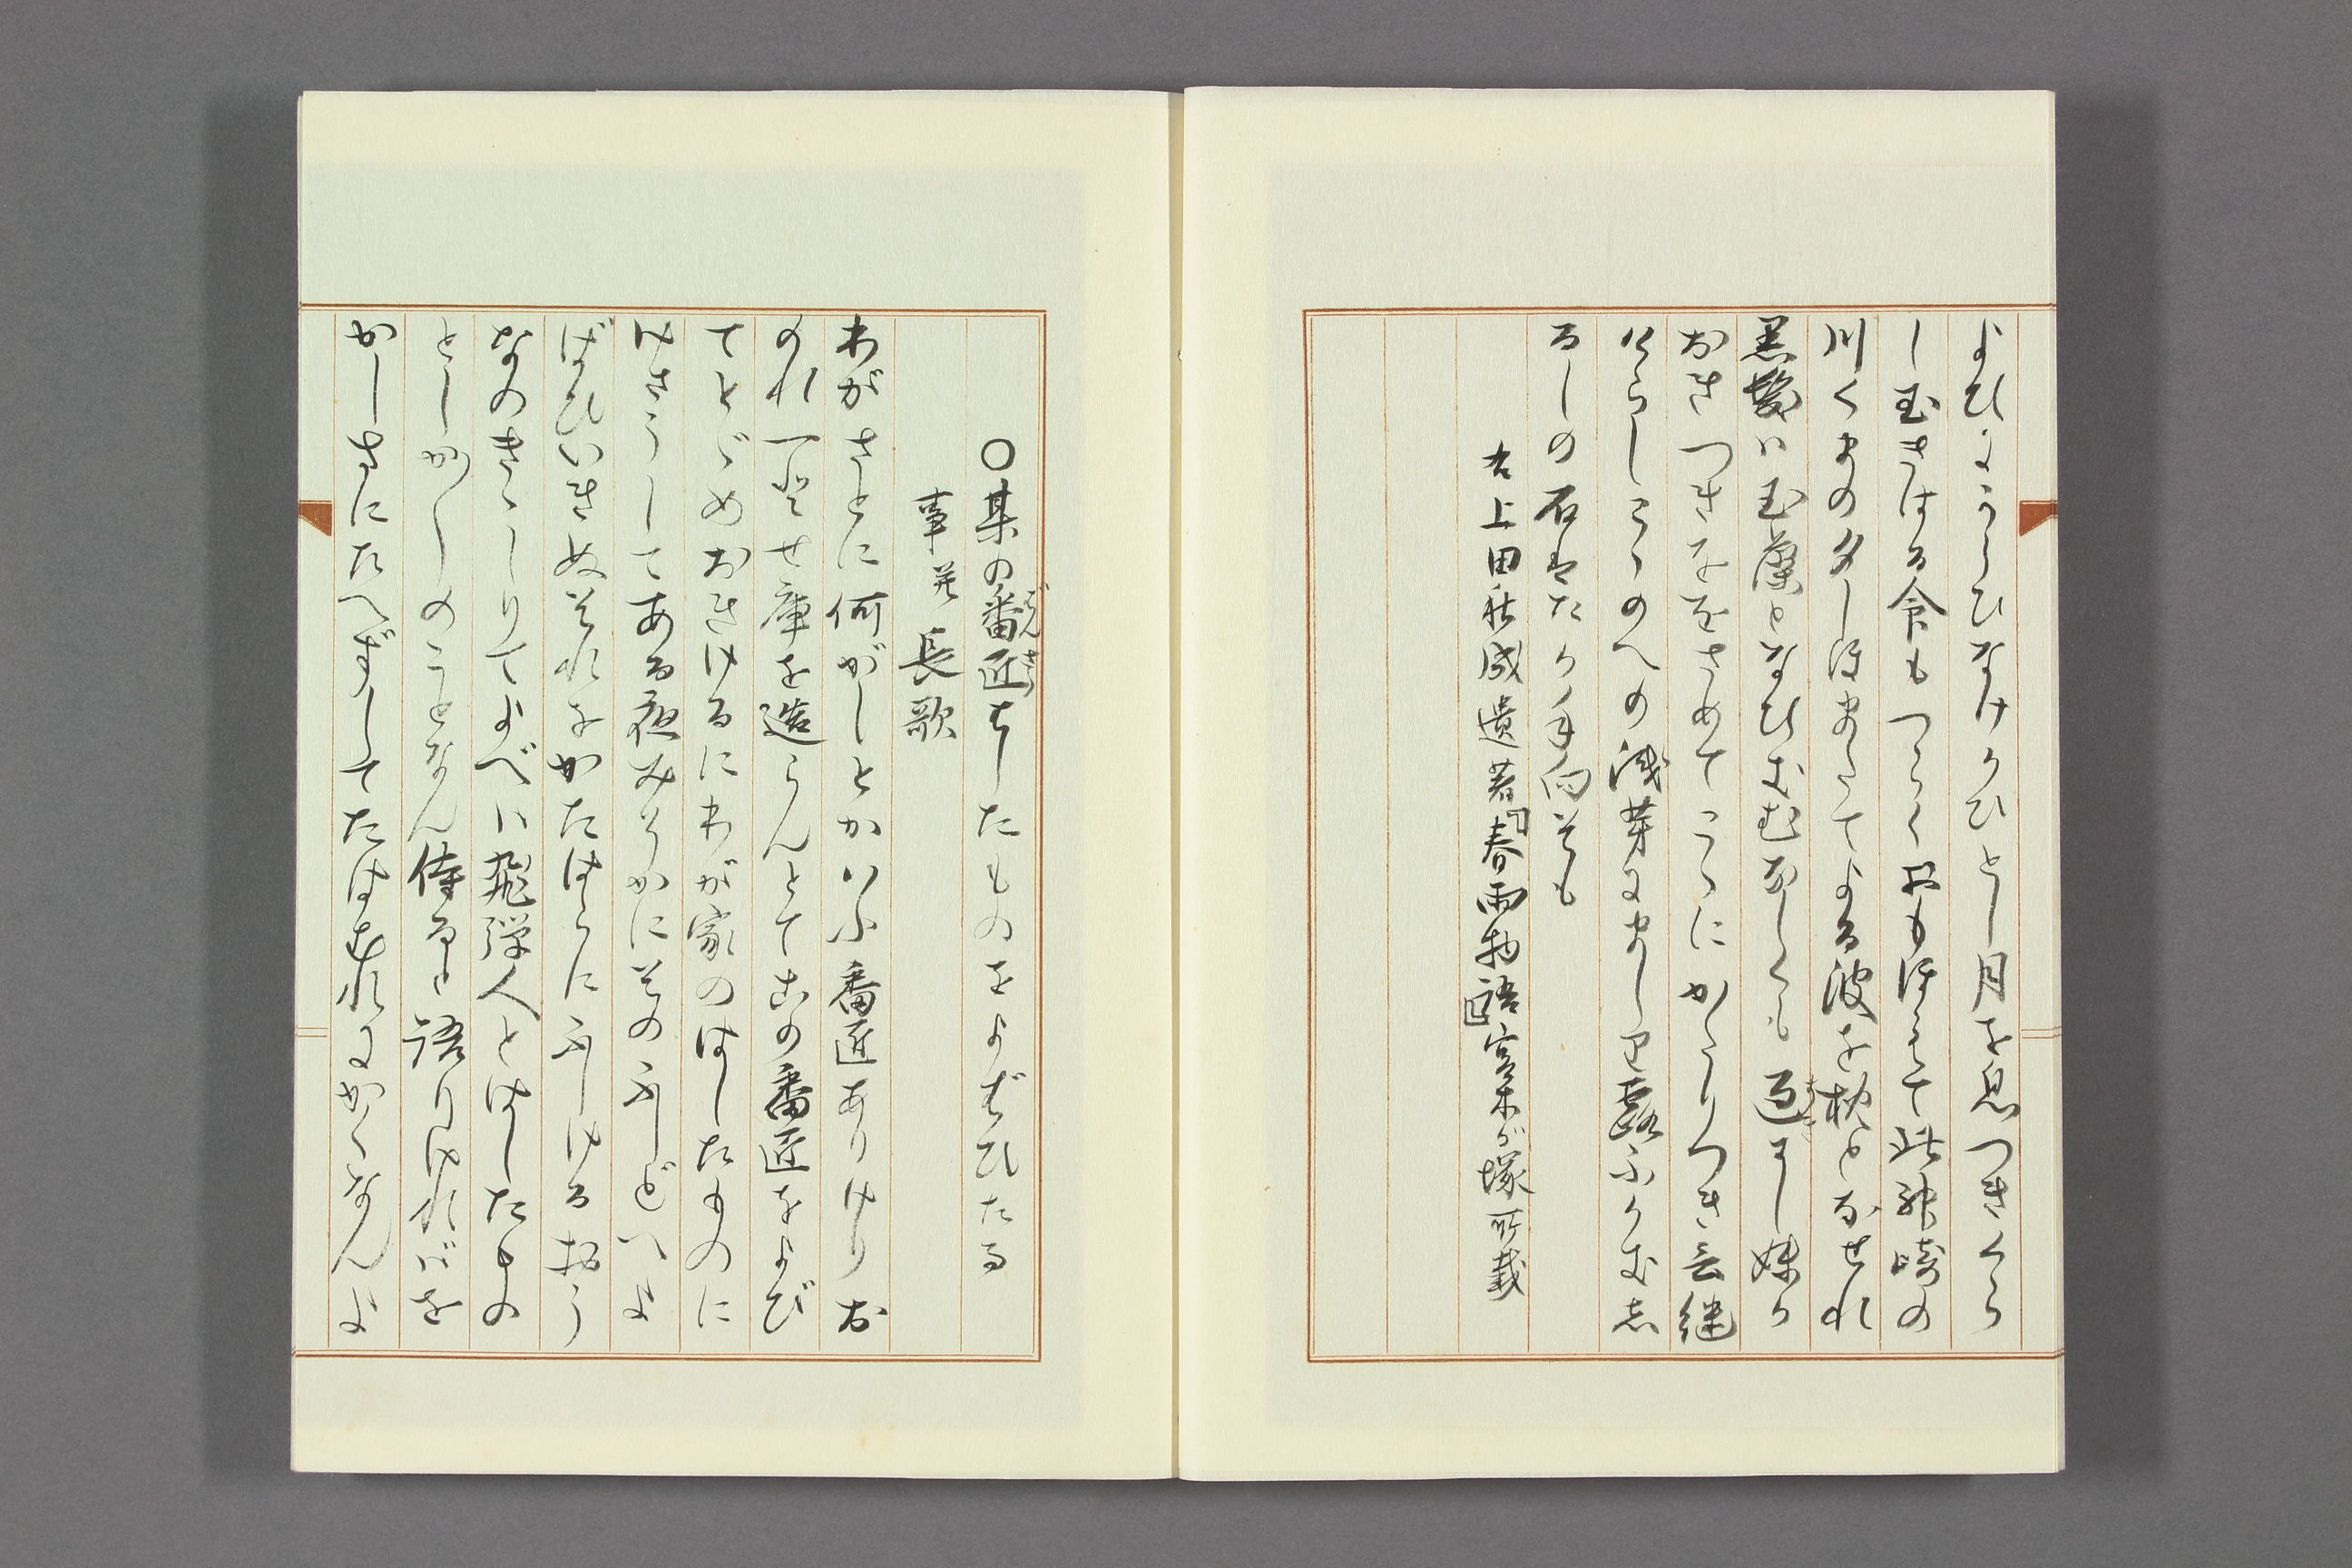 よひにうらひなけひとし月を息つきくら
し玉きはる命もつらくおもほえて此神崎の
川くまの夕しほまちてよる波を枕となせれ
黒髪は玉藻となひむなしくも過にし妹か
おきつきををさめてこゝにかたりつき言継
けらしこゝのへの浅茅にましり露ふかむし
るしの石たか手向そも
右上田秋成遺著「春雨物語」宮木が塚所載
〇某の番匠はしたものをよばひたる
事并長歌
わがさとに何がしとかいふ番匠ありけりお
のれ一とせ庫を造らんとてこの番匠をよび
てとゞめおきけるにわが家のはしたものに
けさうしてある夜みそかにそのふしどによ
ばひいきぬそれをかたはらにふしけるおう
なのきゝしりてよべは飛弾人とはしたもの
としか〴〵のことなん侍ると語りければを
かしさにたへずしてたはむれにかくなんよ